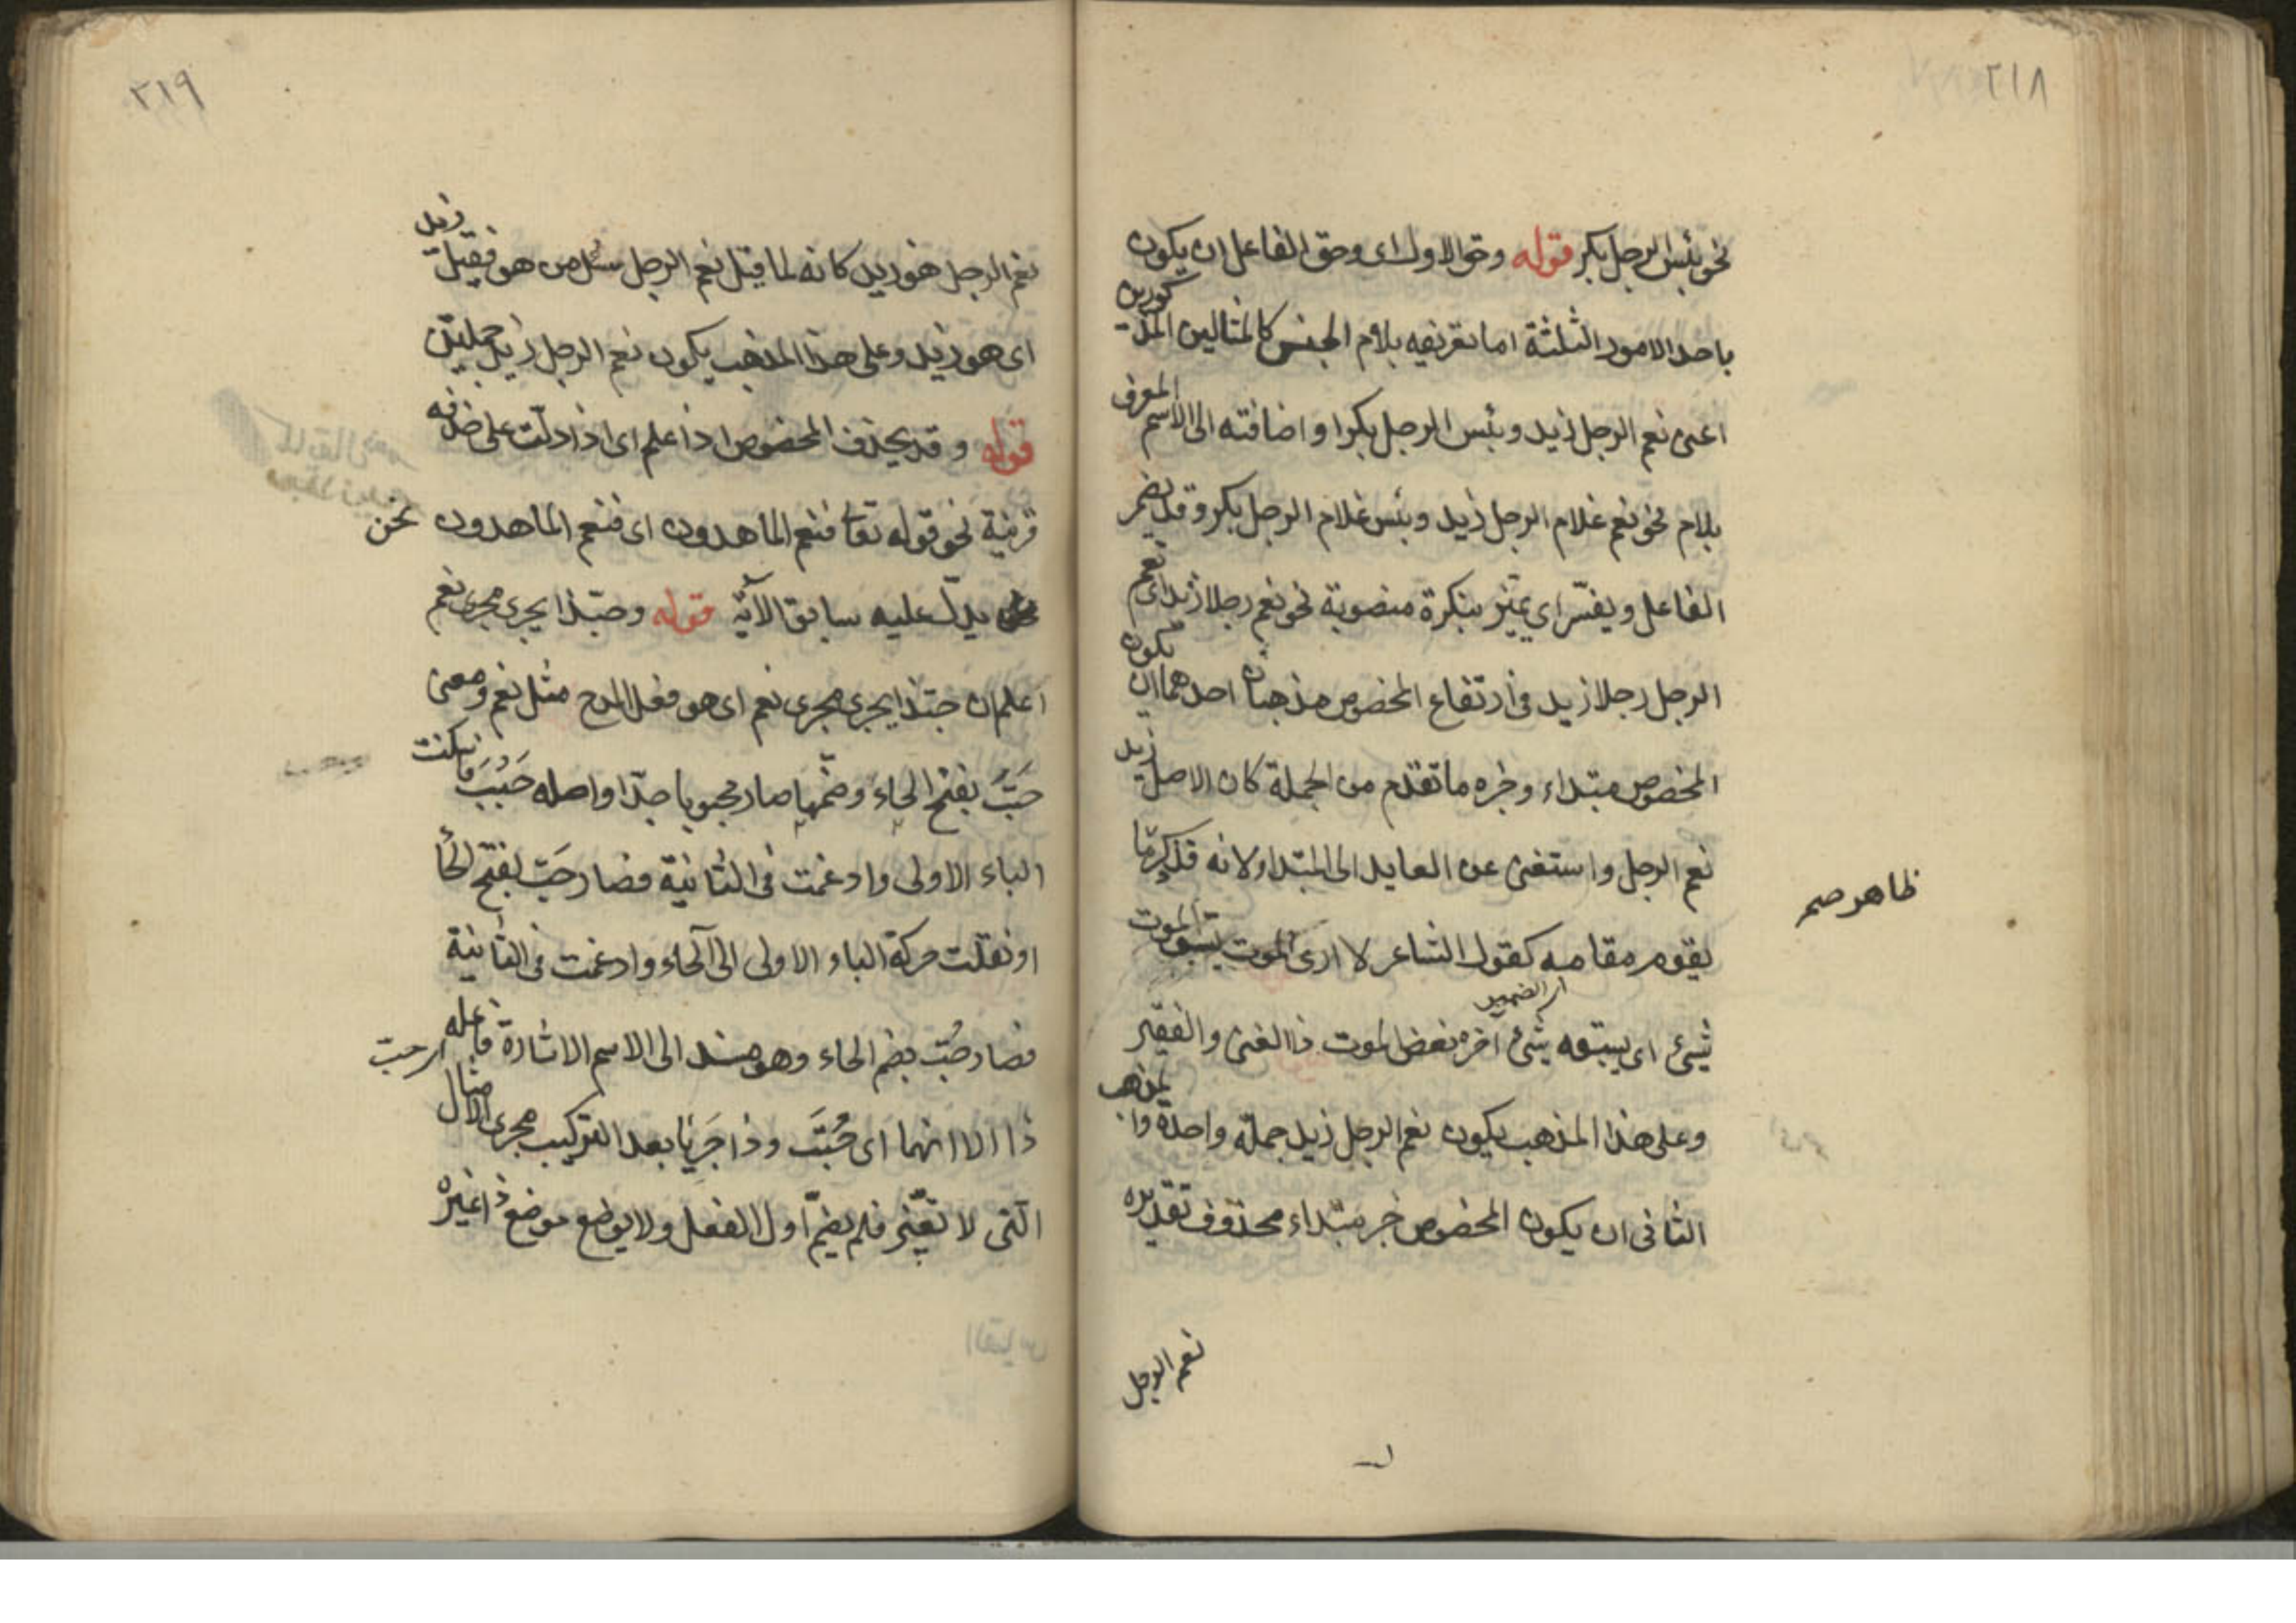 ٢١٨
نحو بئس الرجل بكر قوله وحق الاول اى وحق الفاعل ان يكون
باحد الامور الثلثة اما تعريفه بلام الجنس كالمثالين المذكورين
اعنى نعم الرجل زيد وبئس الرجل بكرا واضافته الى الاسم المعرف
بلام نحو نعم غلام الرجل زيد وبئس غلام الرجل بكر وقد يضمر
الفاعل ويفسّر اى يميّز بنكرة منصوبة نحو نعم رجلا زيد اى نعم
الرجل رجلا زيد فى ارتفاع المخصوص مذهبان احدهما ان تكون
المخصوص مبتداء وخبره ما تقدم من الجملة كان الاصل زيد
نعم الرجل واستغنى عن العايد الى المبتداء لانه قد
ظاهر صح
يقوم مقامه كقول الشاعر لا ارى الموت يسبق الموت
اى الضمير
شئ اى يسبقه شئ آخره نغض الموت ذا الغنى والفقير
وعلى هذا المذهب يكون نعم الرجل زيد جملة واحدة والمذهب
الثانى ان يكون المخصوص خبر مبتداء محذوف تقديره
نعم الرجل
٢١٩
نعم الرجل هو زيد كانه لما قيل نعم الرجل سئل من هو فقيل زيد
اى هو زيد وعلى هذا المذهب يكون نعم الرجل زيد جملتين
قوله وقد يحذف المخصوص اذا علم اى اذا دلّت على حذفه
قرينة نحو قوله تعا فنعم الماهدون اى فنعم الماهدون نحن
يدلّ عليه سابق الآية قوله وحبّذا يجرى مجرى نعم
اعلم ان حبّذا يجرى مجرى نعم اى هو فعل المدح مثل نعم ومعنى
حَبَّ بفتح الحاء وضمّها صار محبوبا جدّا واصله حَبُبَ فاسكنت
الباء الاولى وادغمت فى الثانية فصار حَبّ بفتح الحا
او نقلت حركة الباء الاولى الى الحاء وادغمت فى الثانية
فصار حُبّ بضم الحاء وهو مسند الى الاسم الاشارة فاعله
اى حبّ
ذا الا انهما اى حُبَّ وذا جَرَيَا بعد التركيب مجرى الامثال
التى لا تغيّر فلم يضمّ اول الفعل ولا يوضع موضع ذا غيره